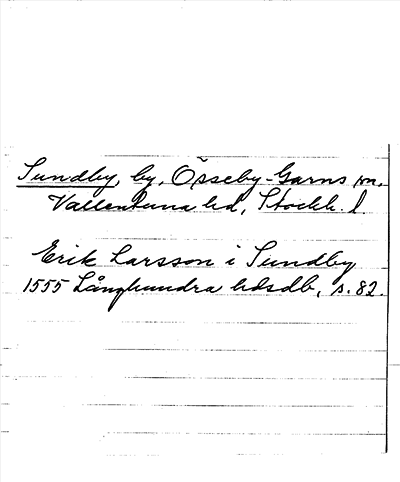 Sundby, by, Össeby-Garns sn,
Vallentuna hd, Stockh. l.
Erik Larsson i Sundby
1555 Långhundra hdsdb, s. 82.